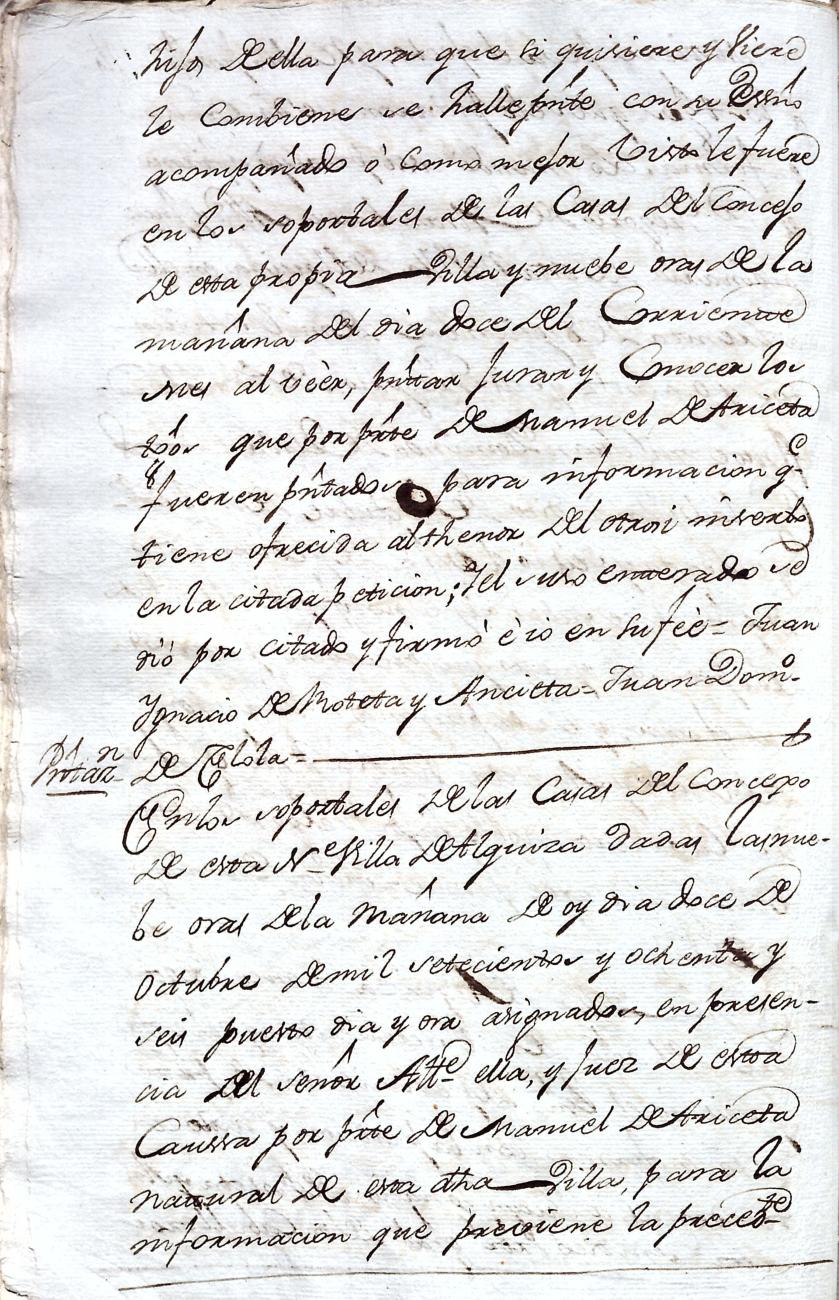 hijos de ella para que si quisiere y viere
le Combiene se halle pnte con su Essno
acompañado ò Como mejor Visto le fuere
en los soportales de las Casas del Concejo
de esta propia Villa y nuebe oras de la
mañana del dia doce del Corriente
mes al veèr, pntar jurar y Conocer los
tgos que por pte de Manuel de Ariceta
fueren pntados para informacion q.e
tiene ofrecida al thenor del otrosi inserto
en la citada peticion; Yel suso enterado se
diò por citado y firmò è io en su fèe = Juan
Ygnacio de Roteta y Ancieta = Juan Domo.
de Elola =
Pntazn
En los soportales de las Casas del Concexo
de esta N.e Villa de Alquiza dadas las nue-
be oras de la Mañana de oy dia doce de
Octubre de mil setecientos y ochenta y
seis puesto dia y ora asignados, en presen-
cia del señor Alle ella, y Juez de estta
Caussa por pte de Manuel de Ariceta
natural de esta dha Villa, para la
informacion que previene la precedte